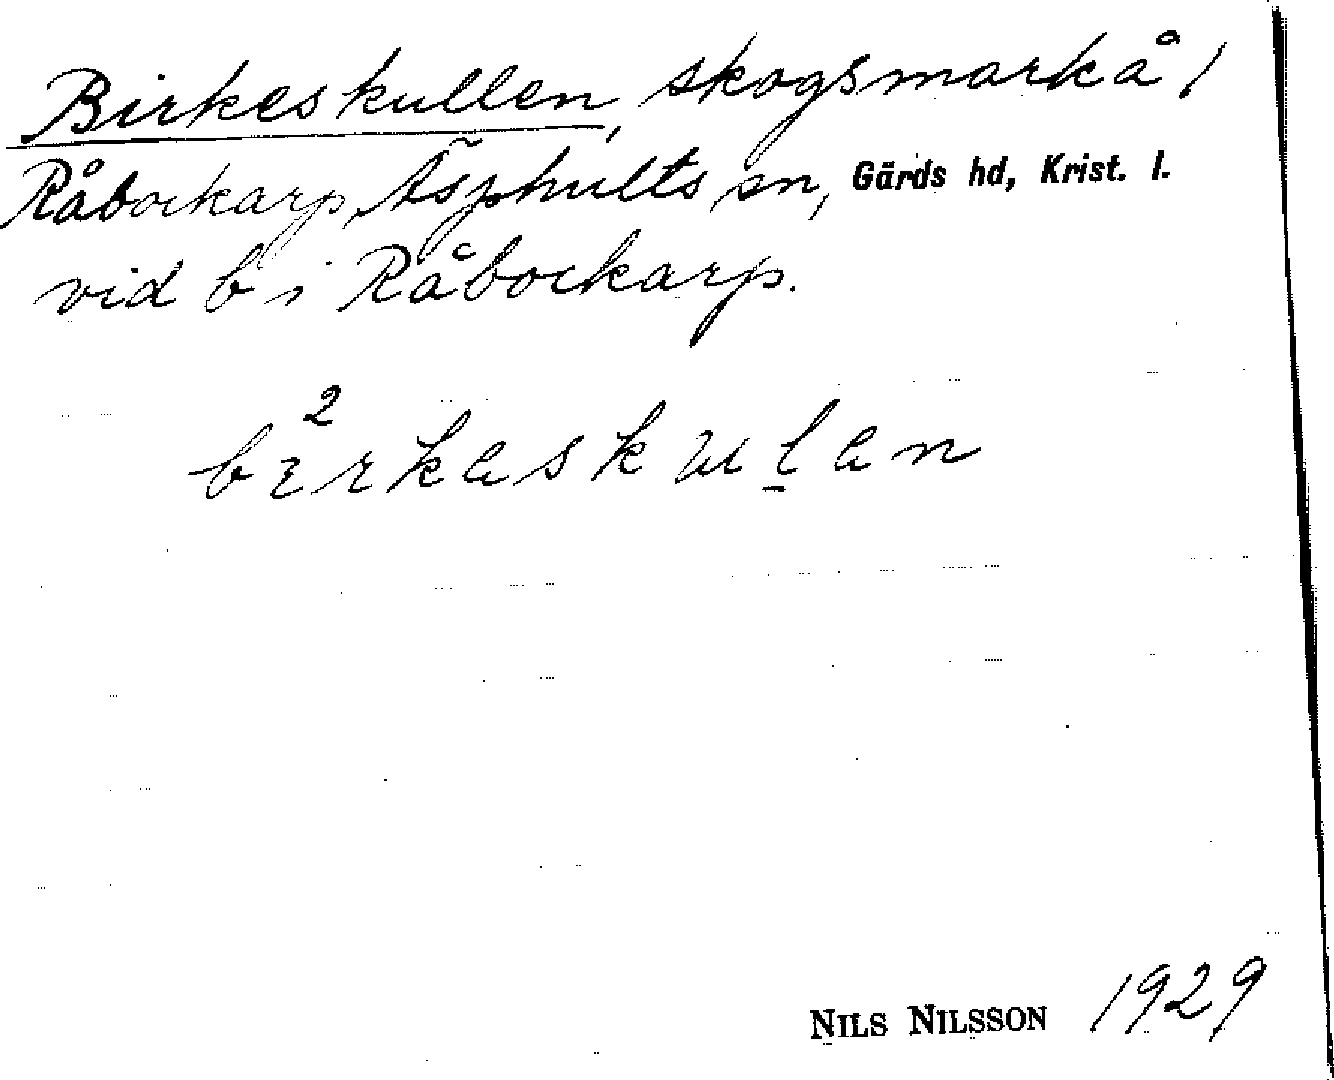 Birkeskullen, skogsmark å 1
Råbockarp, Äsphults sn, Gärds hd, Krist. l.
vid b i Råbockarp.
2
bɪrkaskulan
NILS NILSSON 1929